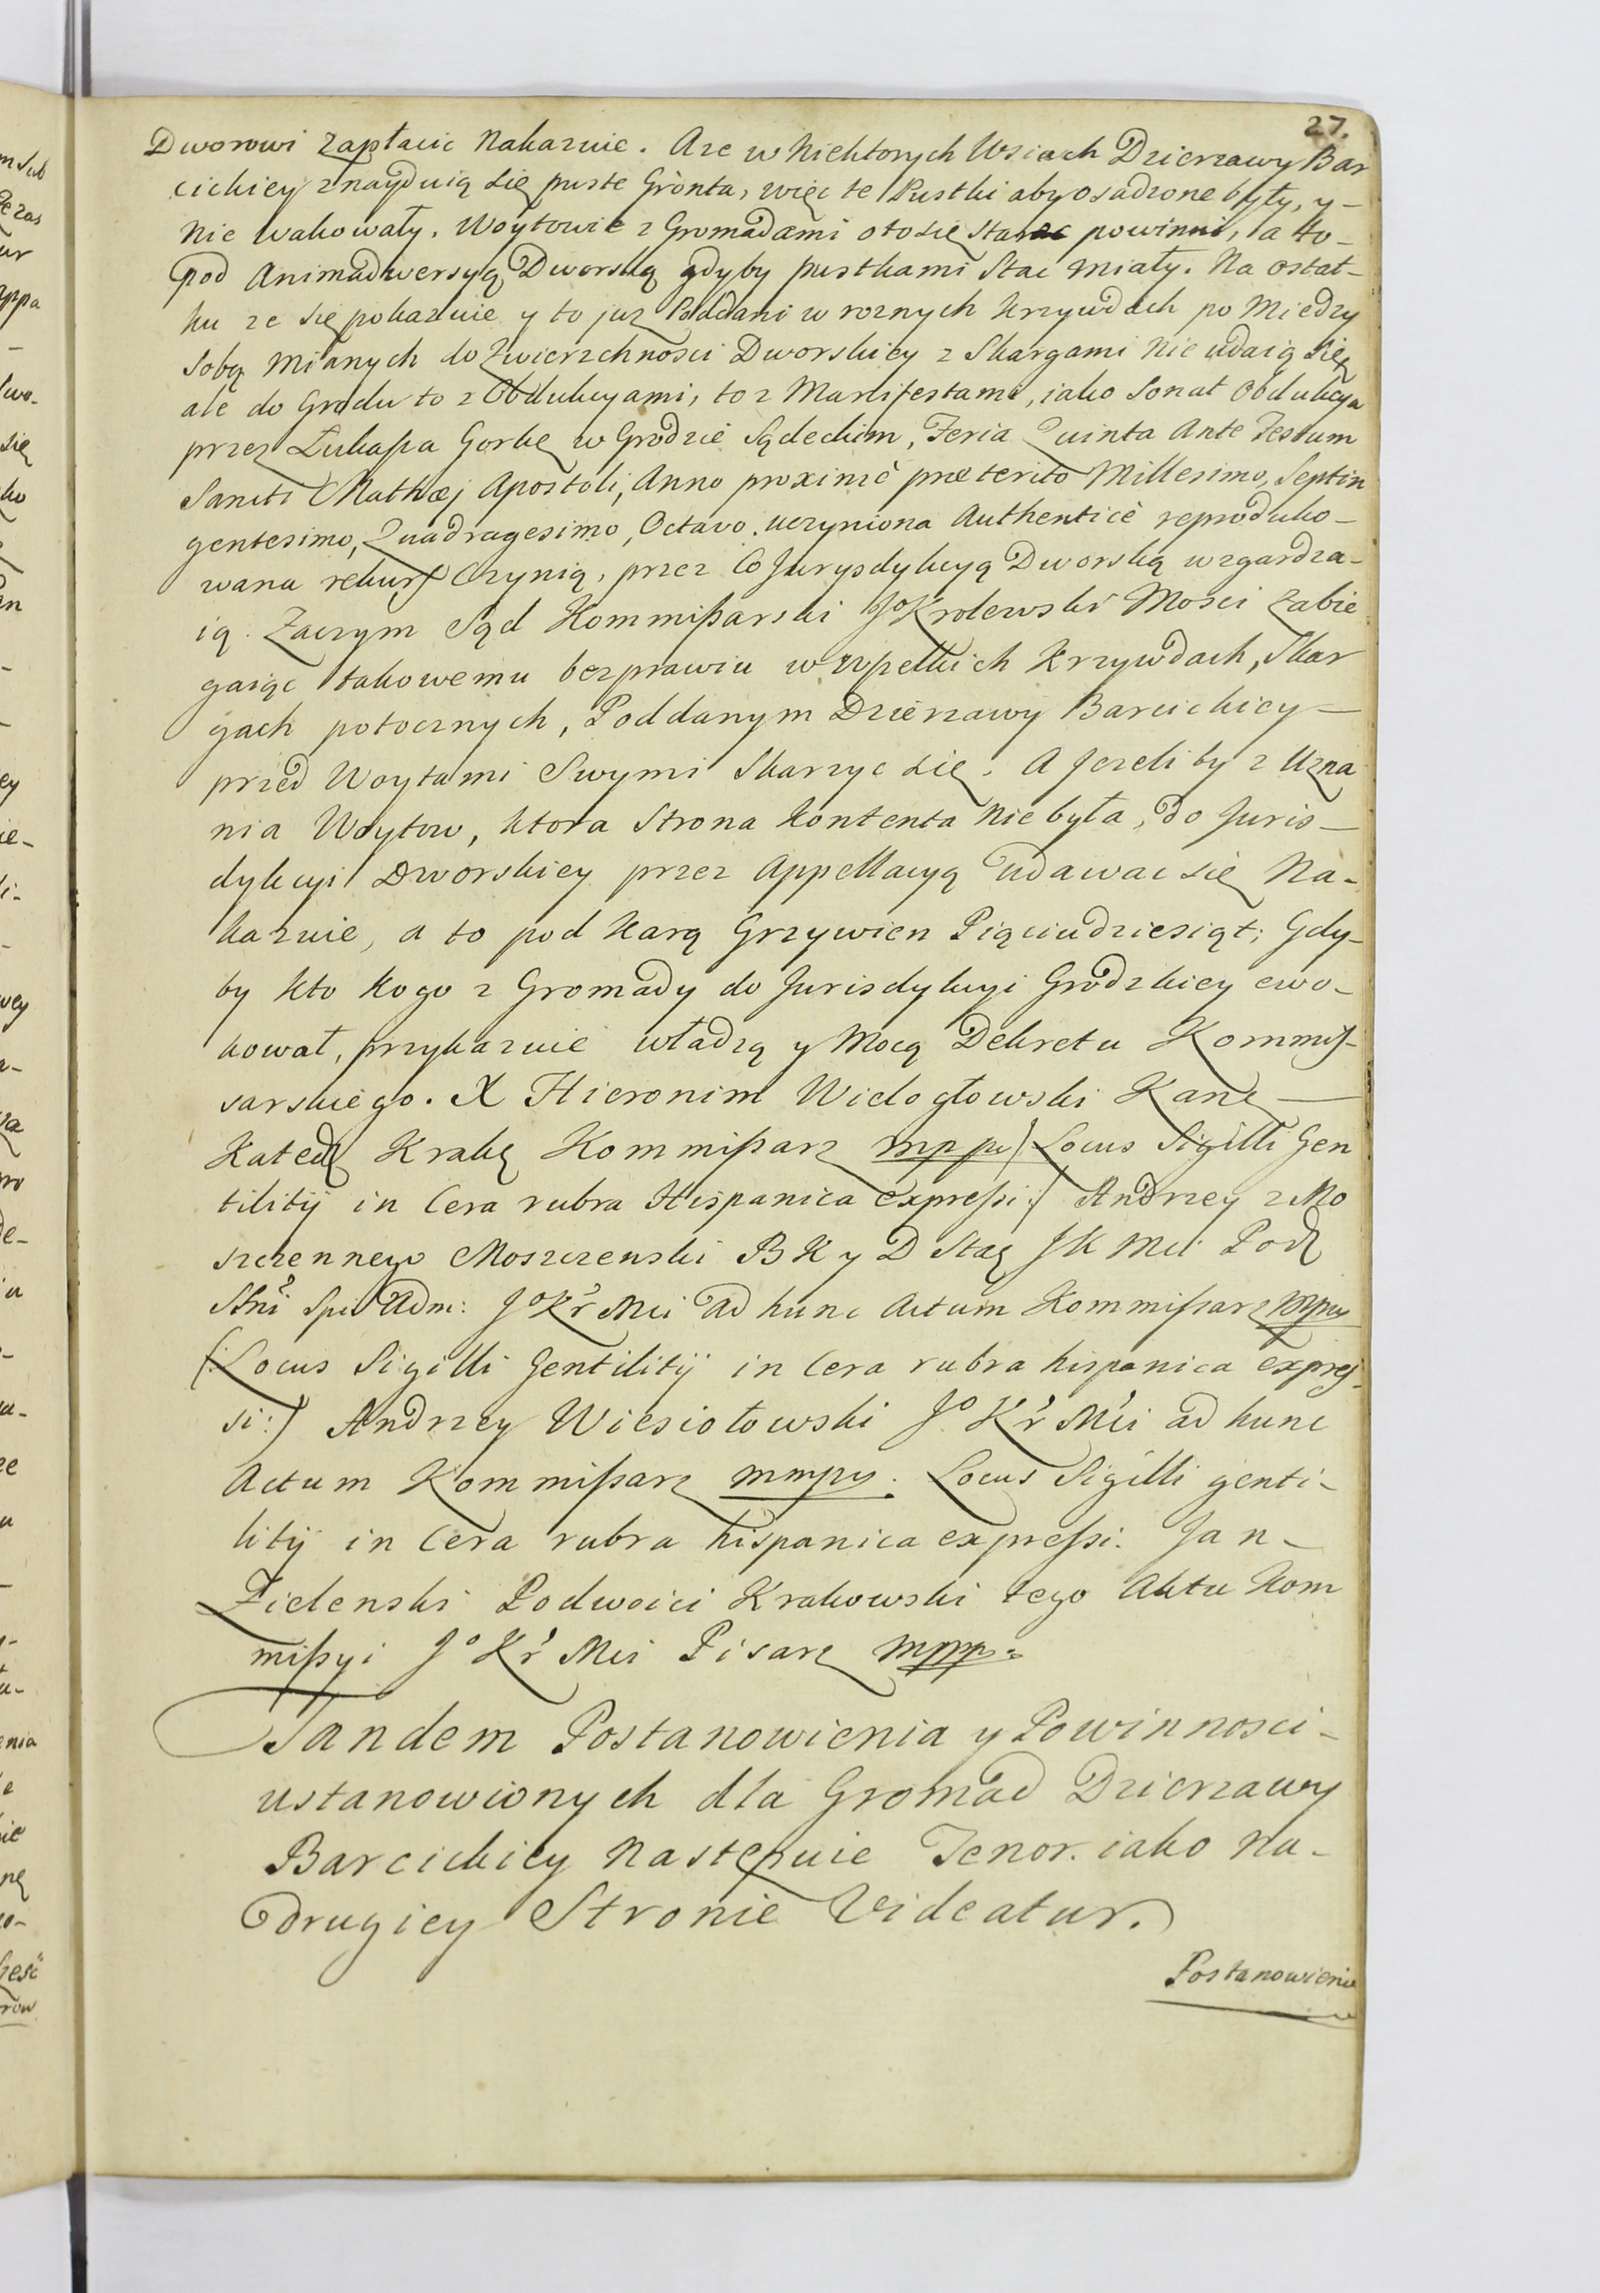 27.
Dworowi zapłacic Nakazuie. A ze w Niektorych Wsiach Dzierzawy Bar
cickiey znayduią się puste Grònta, więc te Pustki aby osadzone były, y –
nie wakowały. Woytowie z Gromadami oto się starac powinni, a to –
pod Animadwersyą Dworską gdyby pustkami Stac miały. Na ostat–
ku ze się pokazuie y to juz Poddani w roznych Krzywdach po Miedzy
Sobą Mianych do Zwierzchnosci Dworskiey z Skargami Nie udaią się
ale do Grodu to z Obdukcyami, to z Manifestami, iako Sonat Obdukcya
przez Łukaſza Gorkę w Grodzie Sądeckim, Feria Quinta Ante Festum
Sancti Mathæj Apostoli, Anno proximè præterito Millesimo, Septin
gentesimo, Quadragesimo, Octavo. uczyniona Authenticè reproduko–
wana rekurſ Czynią, przez Co Jurysdykcyą Dworską wzgardza–
ią. Zaczym Sąd Kommiſsarski Jo Krolewski Mosci Zabie
gaiąc takowemu bezprawiu w wſzelkich Krzywdach, Skar
gach potocznych, Poddanym Dzierzawy Barcickiey –
przed Woytami Swymi Skarzyc się. A Jezeli by z Uzna
nia Woytow, ktora Strona kontenta Nie była, do Juris–
dykcyi Dworskiey przez Appellacyą udawac się Na-
kazuie, a to pod Karą Grzywien Pięciudziesiąt; Gdy–
by kto kogo z Gromady do Jurisdykcyi Grodzkiey ewo–
kował, przykazuie władzą y Mocą Dekretu Kommiſ–
sarskiego. X Hieronim Wielogłowski Kanę
Kated Krakę Kommiſsarz mppa) Locus Sigilli Gen
tilitij in Cera rubra Hispanica expreſsi:) Andrzey z Mo
szczennego Moszczenski B K y D Staę J K Mci Podę
Adm: Jo Kr Mci Ad hunc Actum Kommiſsarz mppa
(:Locus Sigilli Gentilitij in Cera rubra hispanica expreſ–
si:) Andrzey Wiesiołowski Jo Kr Mci ad hunc
Actum Kommiſsarz mmpp. Locus Sigilli genti–
litij in Cera rubra hispanica expreſsi: Jan –
Zielenski Podwoici Krakowski tego Aktu Kom
miſsyi Jo Kr Mci Pisarz mppp.
Tandem Postanowienia y Powinnosci –
ustanowionych dla Gromad Dzierzawy
Barcickiey Następuie Tenor. iako na –
drugiey Stronie Videatur.
Postanowienie